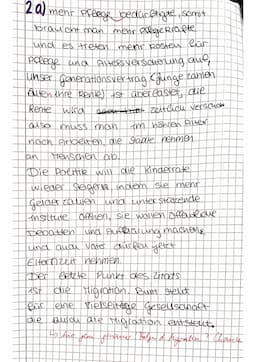 2a) mehr Pflege bedürftige, somit
braucht man mehr Pflegekräfte
und es treten mehr Kosten für
Pflege und Altersversicherung auf,
unser Generationsvertrag (Junge zahlen
Alten ihre Rente) ist überlastet, die
Rente wird zeitlich
also muss man im höhren Alter
noch Arbeiten, die Säale nehmen
an Menschen ab.
Die Politik will die Kinderrate
wieder steigern, indem sie mehr
Gelder zahlen und unterstützende
Institute öffnen, sie wollen öffentliche
Debatten und Aufklärung machen,
und auch Väter dürfen jetzt
Elternzeit nehmen.
Der letzte Punkt des Zitats
ist die Migration. Bunt steht
für eine vielseitige Gesellschaft
die durch die Migration entsteht.